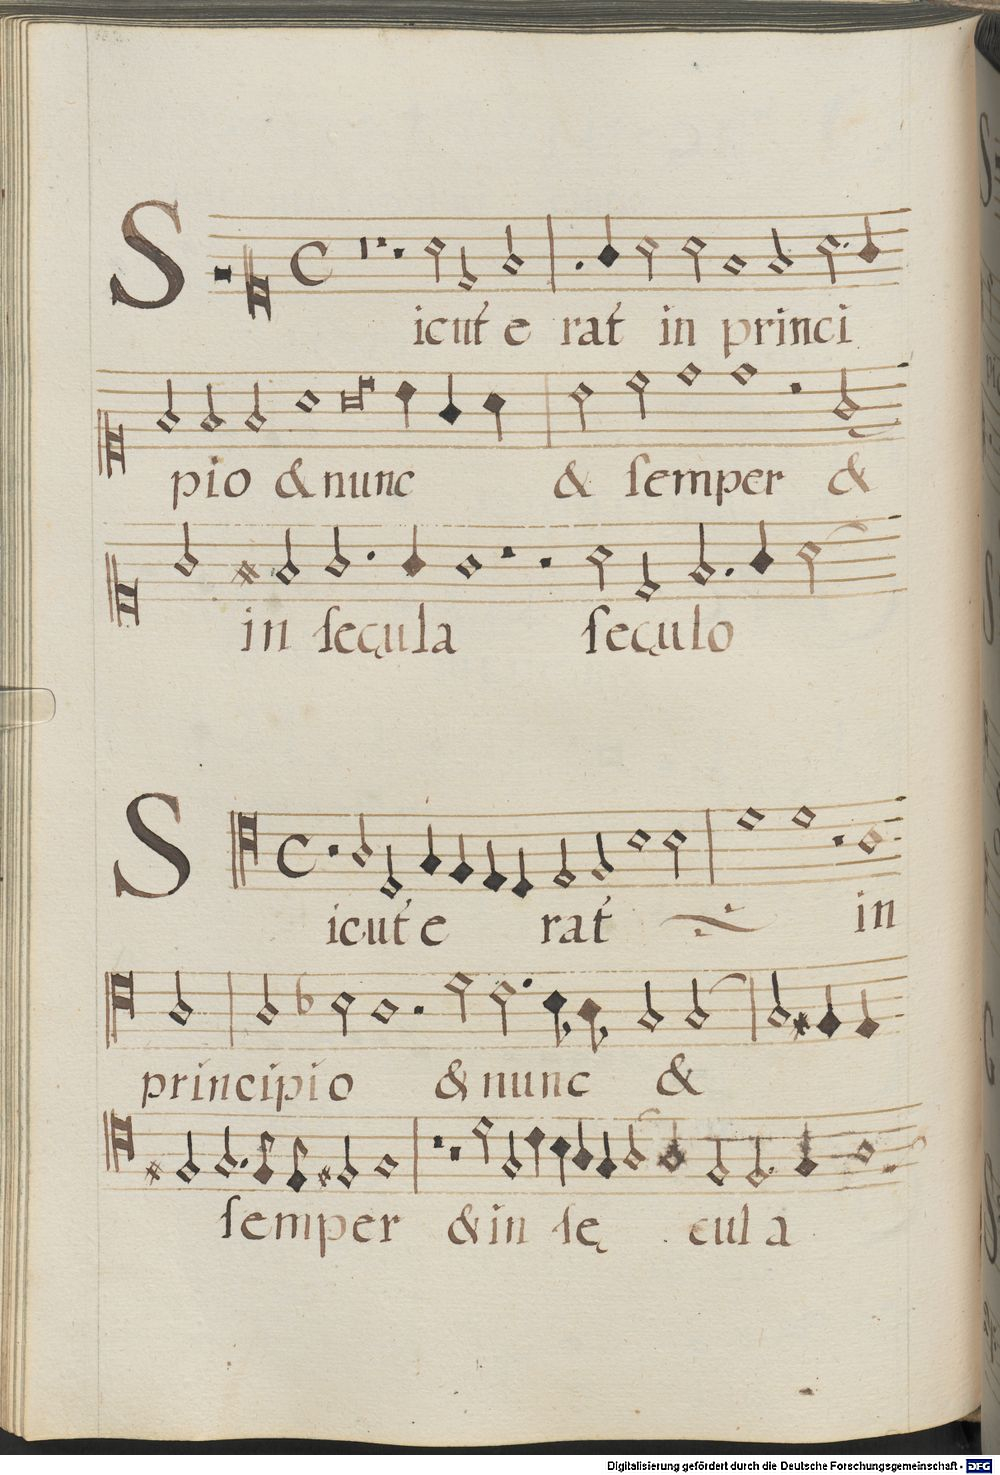 Sicut e rat in princi
pio & nunc & semper &
in sęcula sęculo
Sicut e rat in
principio & nunc &
semper & in sę cula
Digitalisierung gefördert durch die Deutsche Forschungsgemeinschaft - DFG